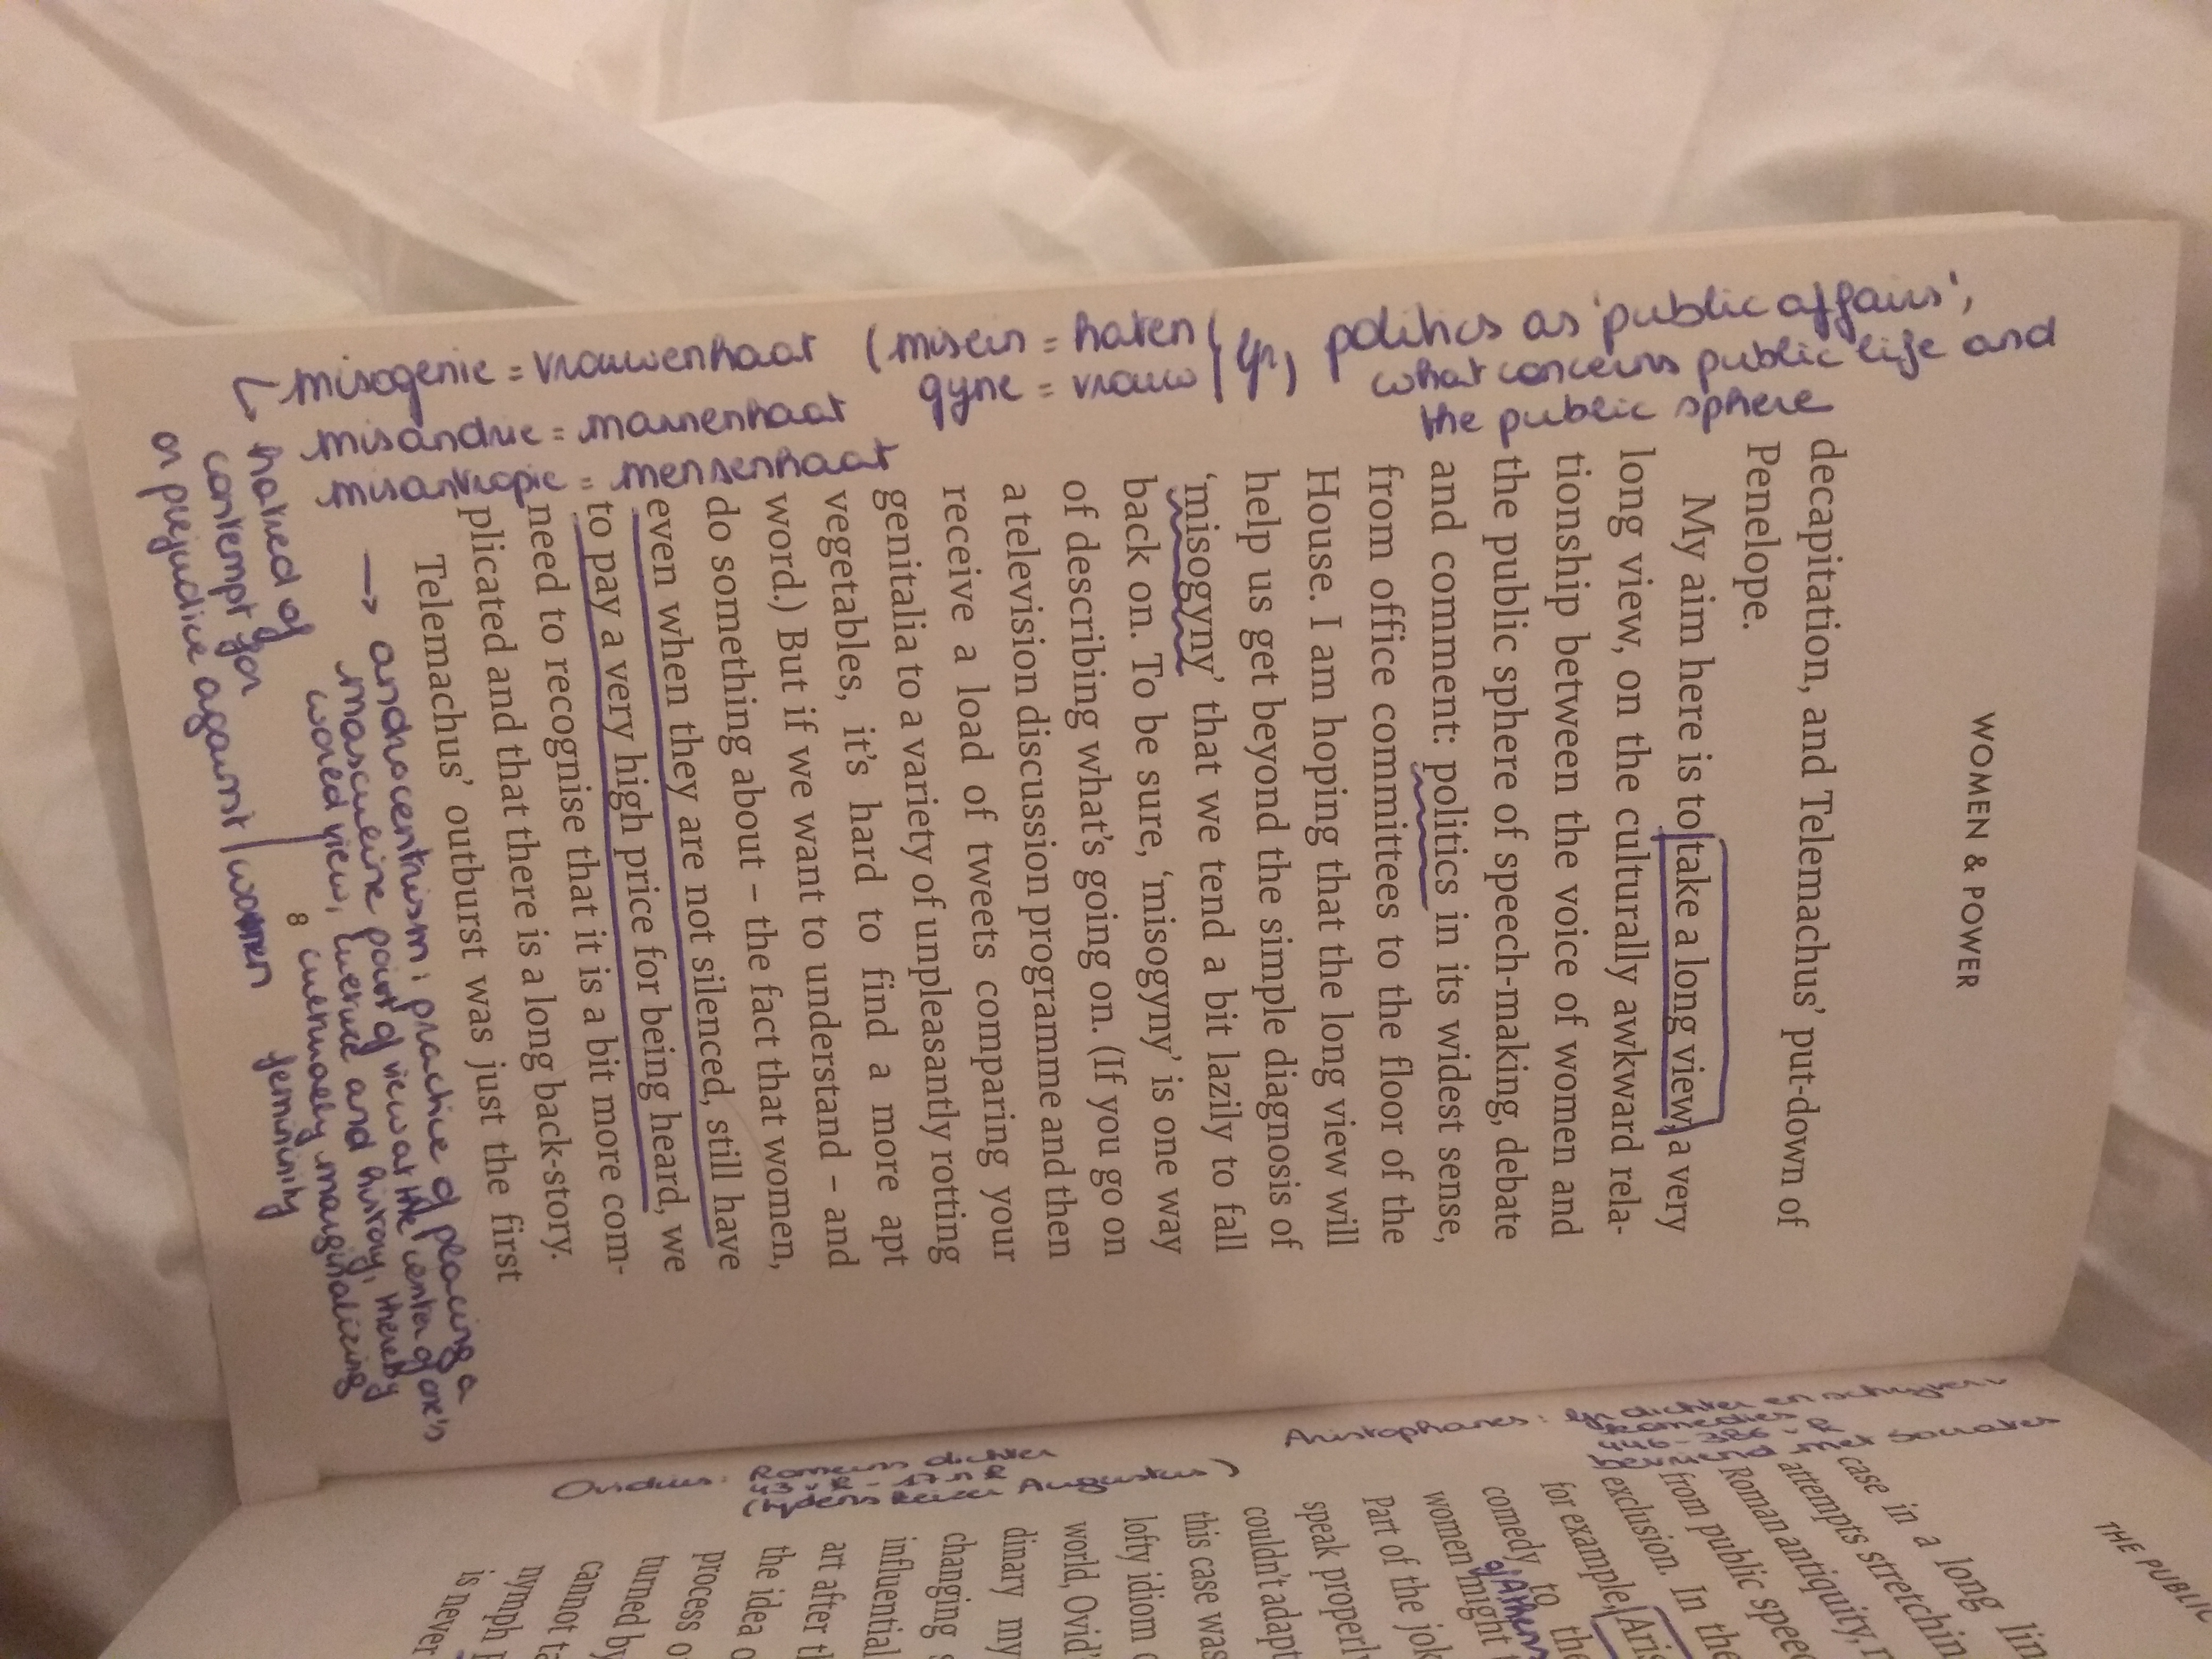 WOMEN & POWER
decapitation, and Telemachus' put-down of
Penelope.
My aim here is to take a long view, a very
long view, on the culturally awkward rela-
tionship between the voice of women and
the public sphere of speech-making, debate
and comment: politics in its widest sense,
from office committees to the floor of the
House. I am hoping that the long view will
help us get beyond the simple diagnosis of
'misogyny' that we tend a bit lazily to fall
back on. To be sure, 'misogyny' is one way
of describing what's going on. (If you go on
a television discussion programme and then
receive a load of tweets comparing your
genitalia to a variety of unpleasantly rotting
vegetables, it's hard to find a more apt
word.) But if we want to understand – and
do something about – the fact that women,
even when they are not silenced, still have
to pay a very high price for being heard, we
need to recognise that it is a bit more com-
plicated and that there is a long back-story.
Telemachus' outburst was just the first
8
politics as 'public affairs',
what concerns public life and
the public sphere
misogenie = vrouwenhaat (misein = haten
gyne = vrouw
misandrie = mannenhaat
misantropie = mensenhaat
hatred of
contempt for
or prejudice against women
→ androcentrism: practice of placing a
masculine point of view at the center of one's
world view, culture and history, thereby
culturally marginalizing
femininity
THE PUBLIC
case in a long lin
attempts stretchin
Roman antiquity,
from public speec
exclusion. In the
for example, Aris
comedy to the
women might t
Part of the jok
speak properly
couldn't adapt
this case was
lofty idiom o
world, Ovid'
dinary my
changing s
influential
art after th
the idea o
process o
turned by
cannot ta
nymph
is never
Aristophanes: gr dichter en schrijver
komedies
446 - 386 v.
bevriend met Socrates
Ovidius: Romeins dichter
43 v. - 17 n
(tijdens keizer Augustus)